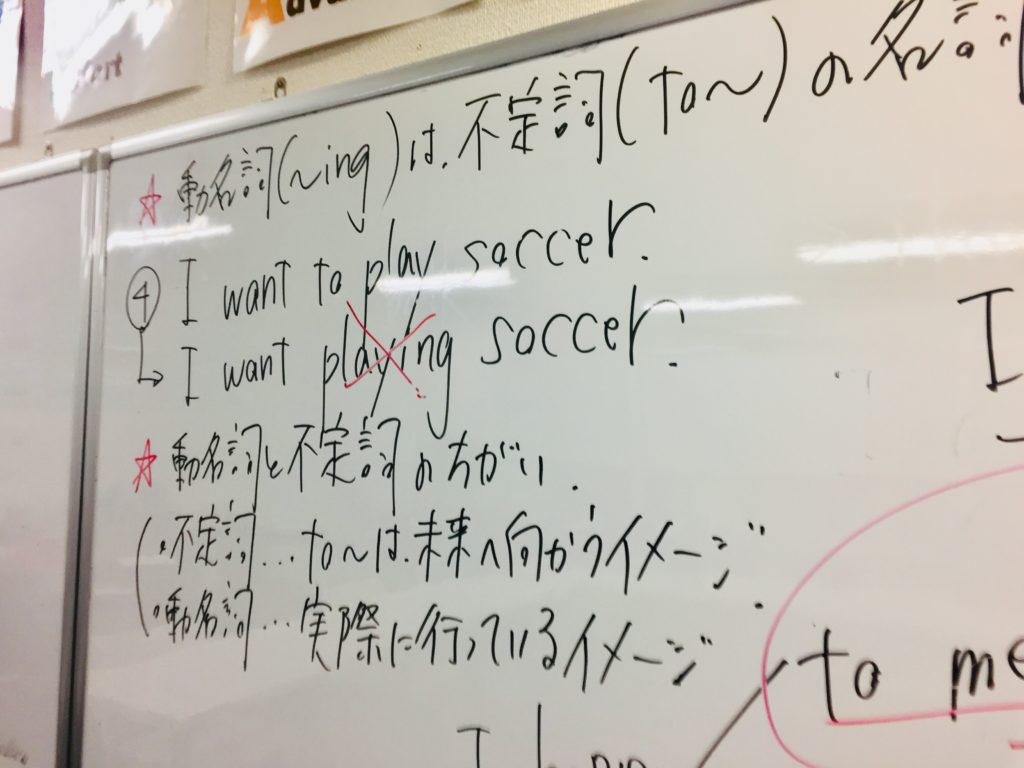 ☆ 動名詞(~ing)は、不定詞(to~)の名詞
④ I want to play soccer.
↳ I want playing soccer.
☆ 動名詞と不定詞のちがい.
・不定詞…to~は、未来へ向かうイメージ.
・動名詞…実際に行っているイメージ
I
to me